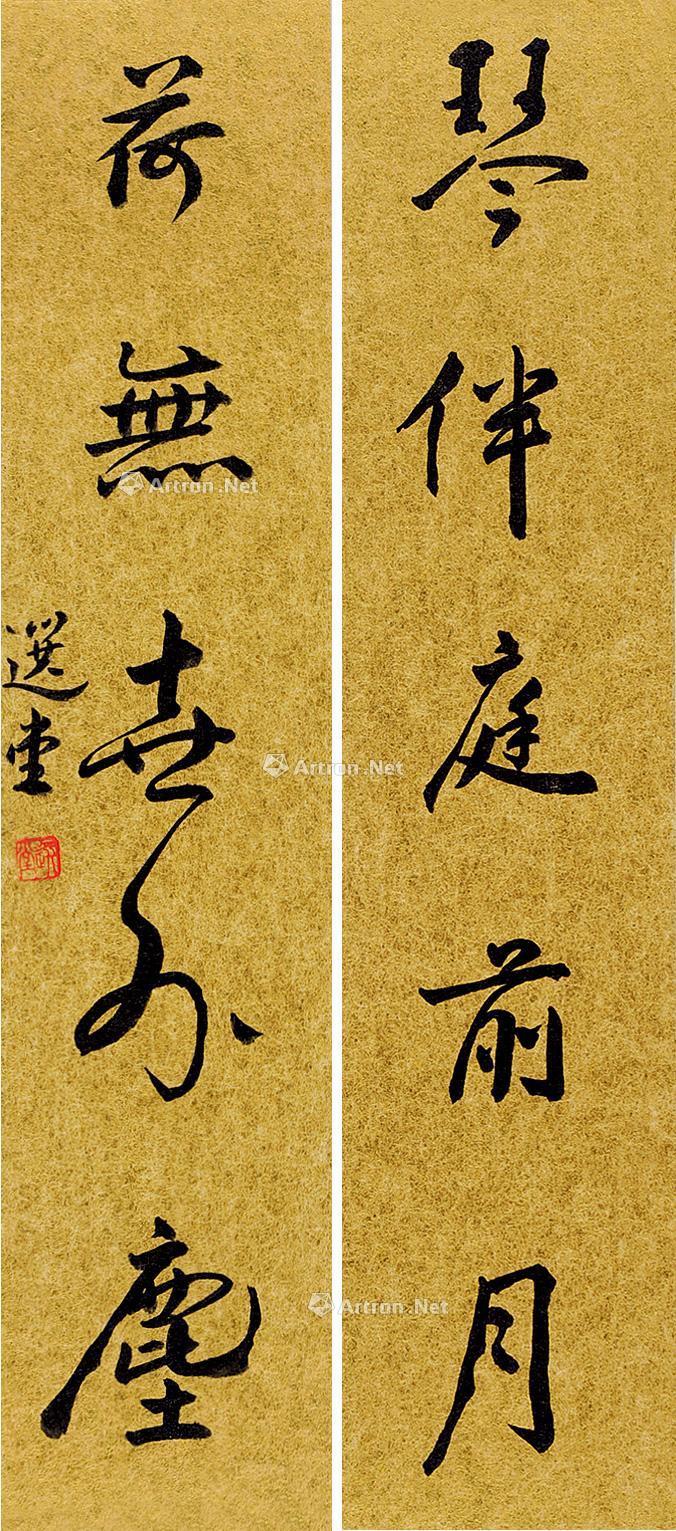 琴伴庭前月
荷無世外塵
選堂
Artron.Net
Artron.Net
Artron.Net